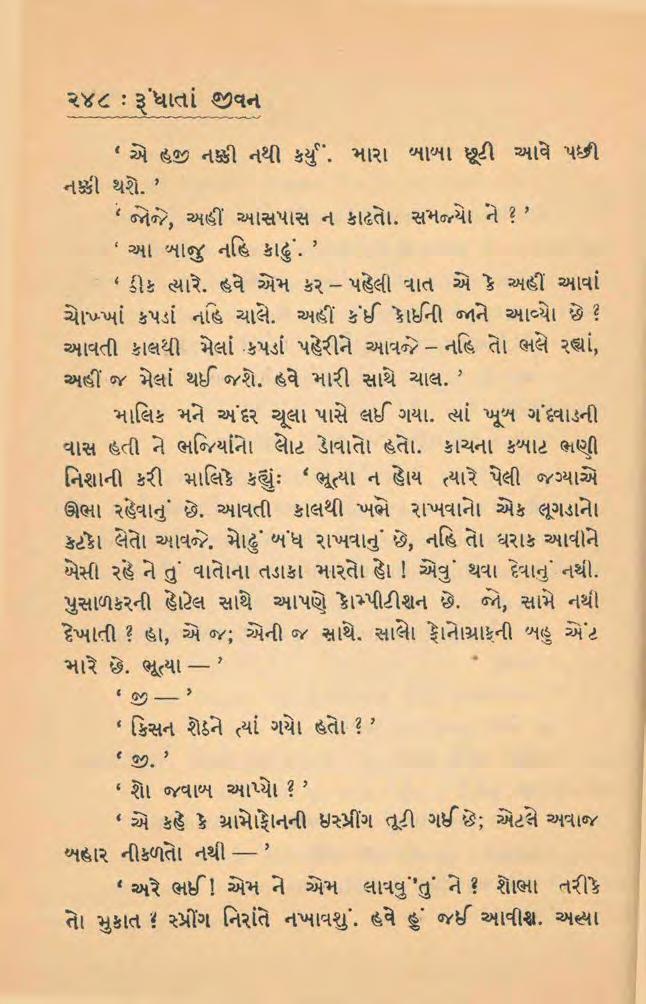 ૨૪૮ : રૂંધાતાં જીવન
‘ એ હજી નક્કી નથી કર્યું. મારા બાબા છૂટી આવે પછી
નક્કી થશે. ’
‘ જોજે, અહીં આસપાસ ન કાઢતો. સમજ્યો ને ? ’
‘ આ બાજુ નહિ કાઢું. ’
‘ ઠીક ત્યારે. હવે એમ કર – પહેલી વાત એ કે અહીં આવાં
ચોખ્ખાં કપડાં નહિ ચાલે. અહીં કંઈ કોઈની જાને આવ્યો છે ?
આવતી કાલથી મેલાં કપડાં પહેરીને આવજે – નહિ તો ભલે રહ્યાં,
અહીં જ મેલાં થઈ જશે. હવે મારી સાથે ચાલ. ’
માલિક મને અંદર ચૂલા પાસે લઈ ગયા. ત્યાં ખૂબ ગંદવાડની
વાસ હતી ને ભજિયાંનો લોટ ડોવાતો હતો. કાચના કબાટ ભણી
નિશાની કરી માલિકે કહ્યું: ‘ ભૂત્યા ન હોય ત્યારે પેલી જગ્યાએ
ઊભા રહેવાનું છે. આવતી કાલથી ખભે રાખવાનો એક લૂગડાનો
કટકો લેતો આવજે. મોઢું બંધ રાખવાનું છે, નહિ તો ઘરાક આવીને
બેસી રહે ને તું વાતોના તડાકા મારતો હો ! એવું થવા દેવાનું નથી.
પુસાળકરની હોટેલ સાથે આપણે કોમ્પીટીશન છે. જો, સામે નથી
દેખાતી ? હા, એ જ; એની જ સાથે. સાલો ફોનોગ્રાફની બહુ એંટ
મારે છે. ભૂત્યા — ’
‘ જી — ’
‘ કિસન શેઠને ત્યાં ગયો હતો ? ’
‘ જી. ’
‘ શો જવાબ આપ્યો ? ’
‘ એ કહે કે ગ્રામોફોનની ઇસ્પ્રીંગ તૂટી ગઈ છે; એટલે અવાજ
બહાર નીકળતો નથી — ’
‘ અરે ભઈ ! એમ ને એમ લાવવું'તું ને ? શોભા તરીકે
તો મુકાત ? સ્પ્રીંગ નિરાંતે નખાવશું. હવે હું જઈ આવીશ. અલ્યા